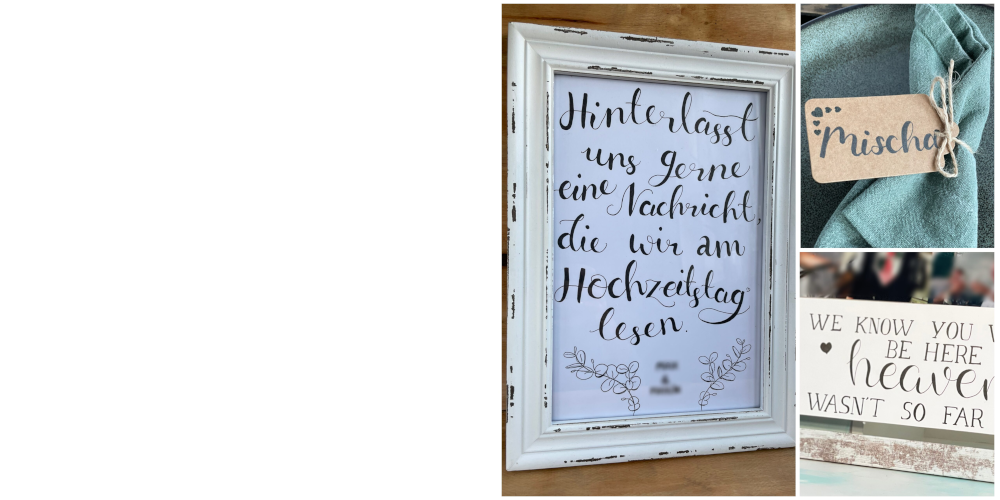 Hinterlasst
uns gerne
eine Nachricht,
die wir am
Hochzeitstag
lesen.
&
Mischa
WE KNOW YOU
BE HERE
heaven
WASN'T SO FAR